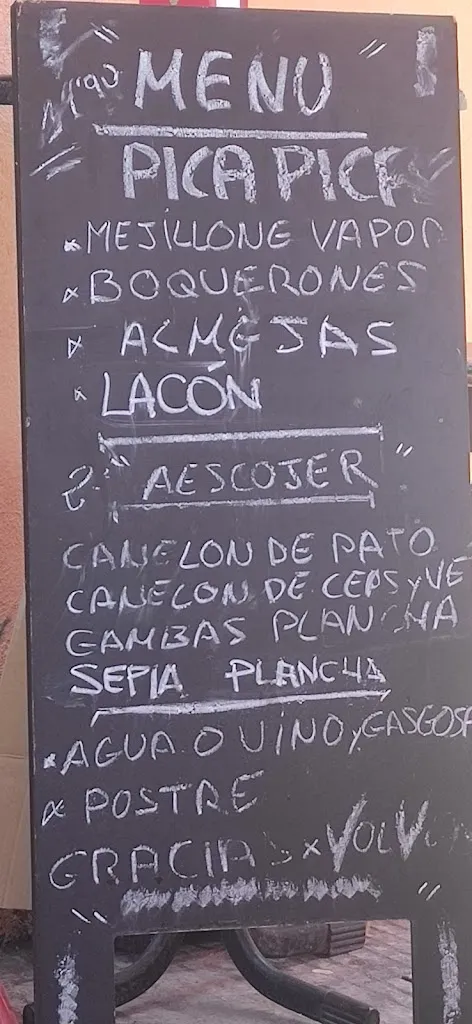 MENU
PICA PICA
MEJILLONE VAPOR
BOQUERONES
ALMEJAS
LACÓN
2º "AESCOJER"
CANELON DE PATO
CANELON DE CEPS y VE
GAMBAS PLANCHA
SEPIA PLANCHA
AGUA O VINO y GASGOSA
POSTRE
GRACIAS x VOLV